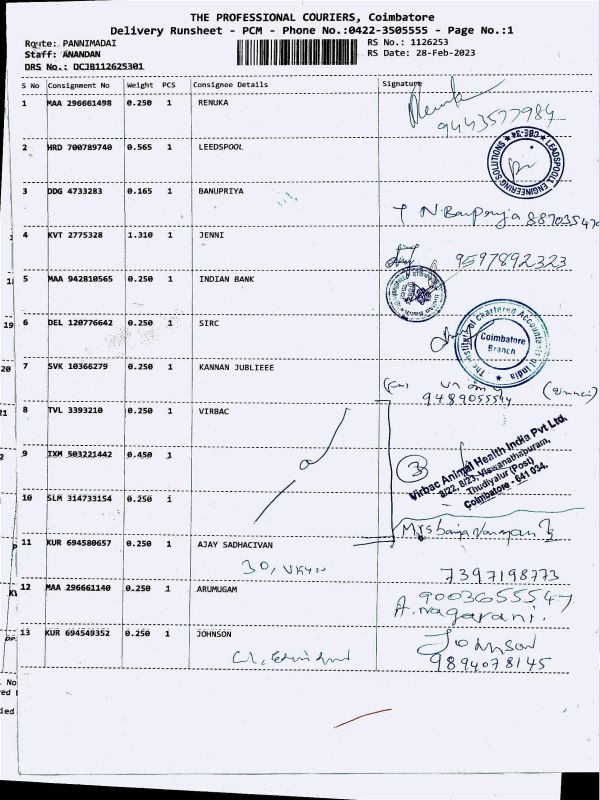 THE PROFESSIONAL COURIERS, Coimbatore
Delivery Runsheet - PCM - Phone No.:0422-3505555 - Page No.:1
Route: PANNIMADAI
RS No.: 1126253
Staff: ANANDAN
RS Date: 28-Feb-2023
DRS No.: DCJB112625301
S No Consignment No Weight PCS Consignee Details Signature
1 MAA 296661498 0.250 1 RENUKA
Renuka
9443577984
2 HRD 700789740 0.565 1 LEEDSPOOL
LEADSPOOL ENGINEERING SOLUTIONS * CBE-34 *
3 DDG 4733283 0.165 1 BANUPRIYA
4 KVT 2775328 1.310 1 JENNI
9597892323
5 MAA 942810565 0.250 1 INDIAN BANK
6 DEL 120776642 0.250 1 SIRC
The Institute of Chartered Accountants of India
Coimbatore
Branch
7 SVK 10366279 0.250 1 KANNAN JUBLIEEE
8 TVL 3393210 0.250 1 VIRBAC
9 IXM 503221442 0.450 1
3
Virbac Animal Health India Pvt Ltd.
8/22, 8/23, Viswanathapuram,
Thudiyalur (Post)
Coimbatore - 641 034.
10 SLM 314733154 0.250 1
11 KUR 694580657 0.250 1 AJAY SADHACIVAN
7397198773
12 MAA 296661140 0.250 1 ARUMUGAM
9003655547
A.nagarani.
13 KUR 694549352 0.250 1 JOHNSON
Johnson
9894078145